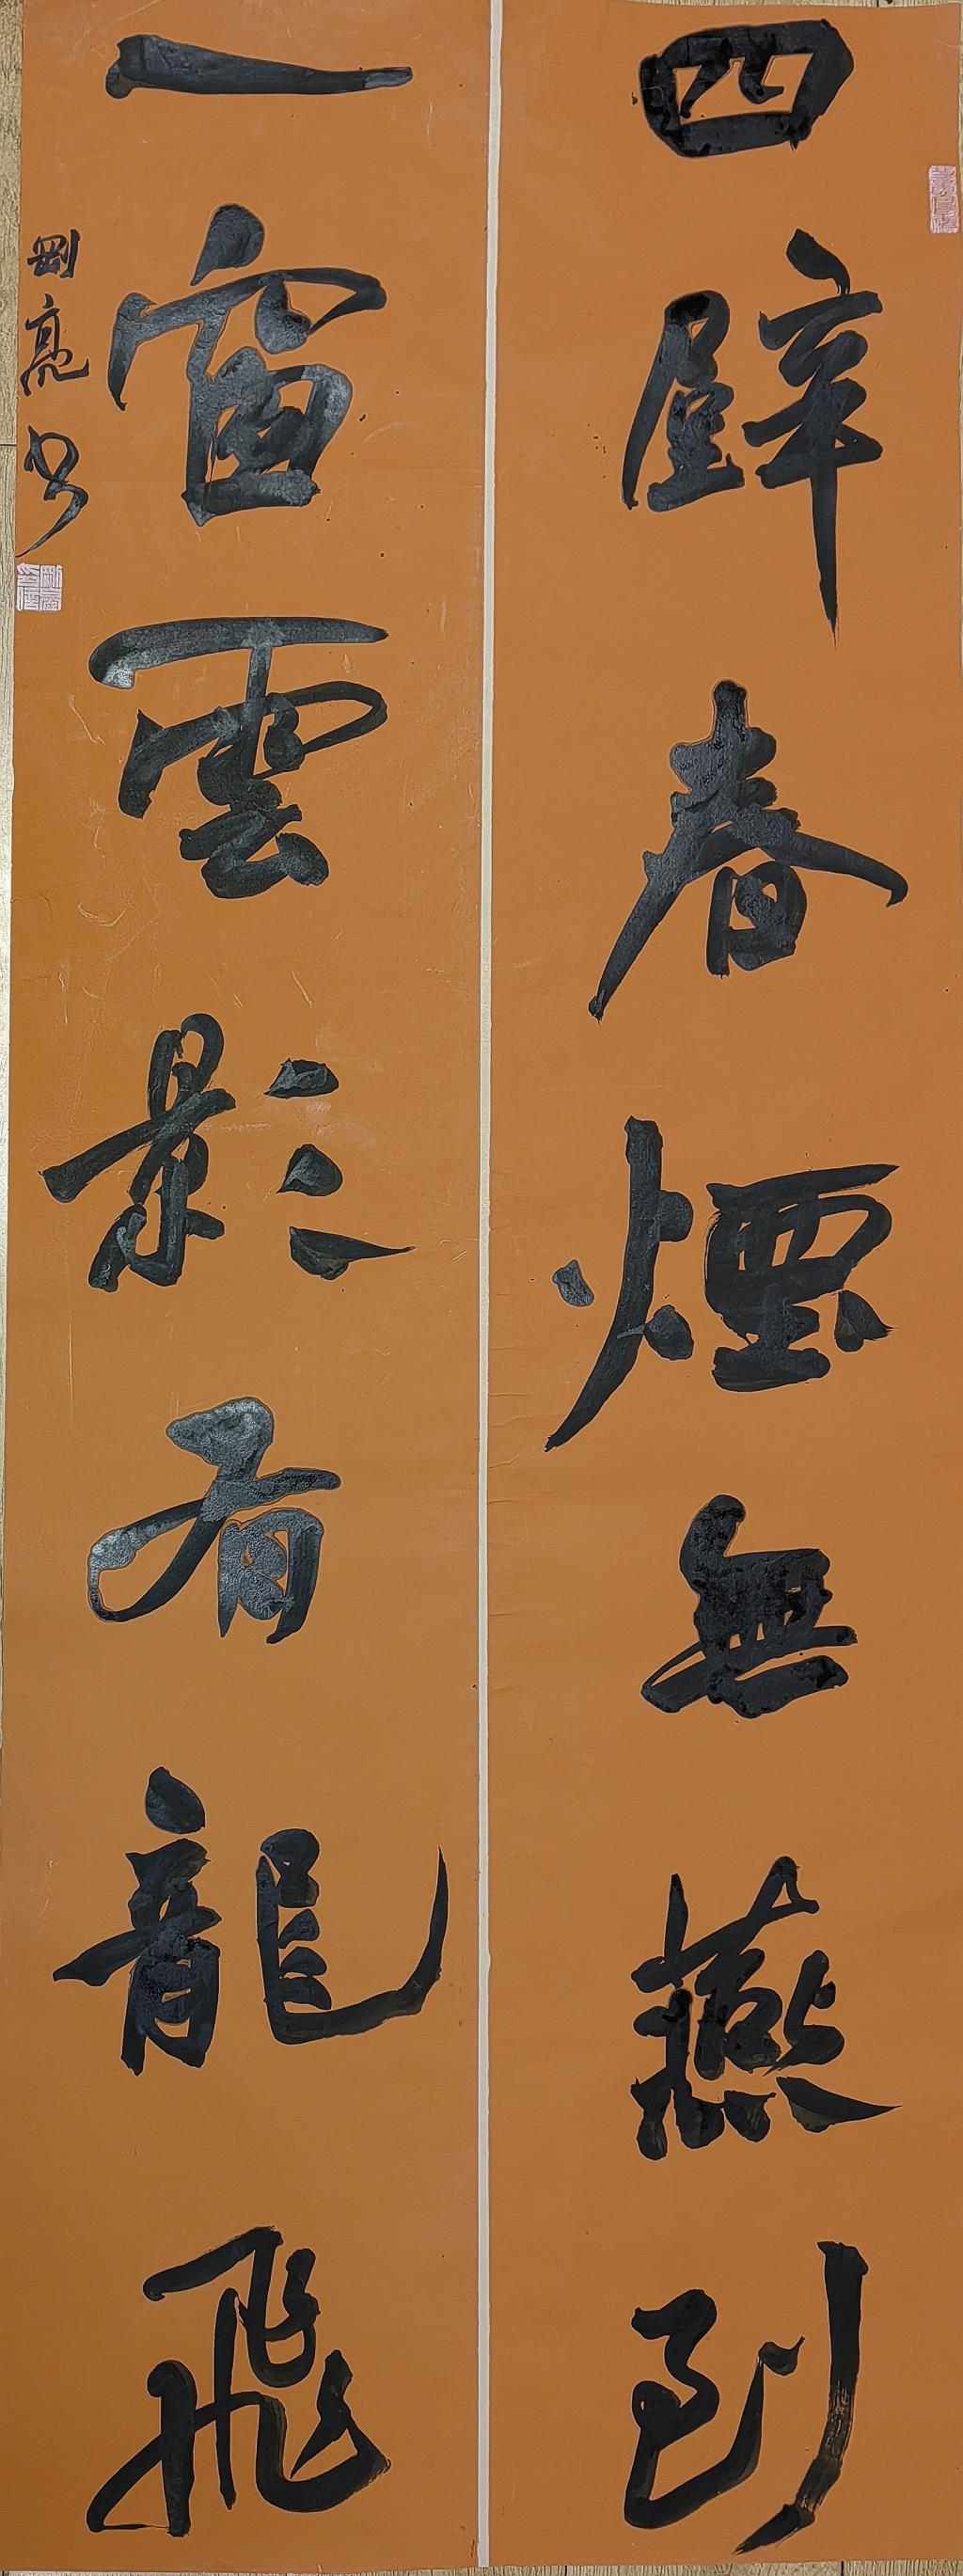 四壁春煙無燕到
一窗雲影有龍飛
剛亮书